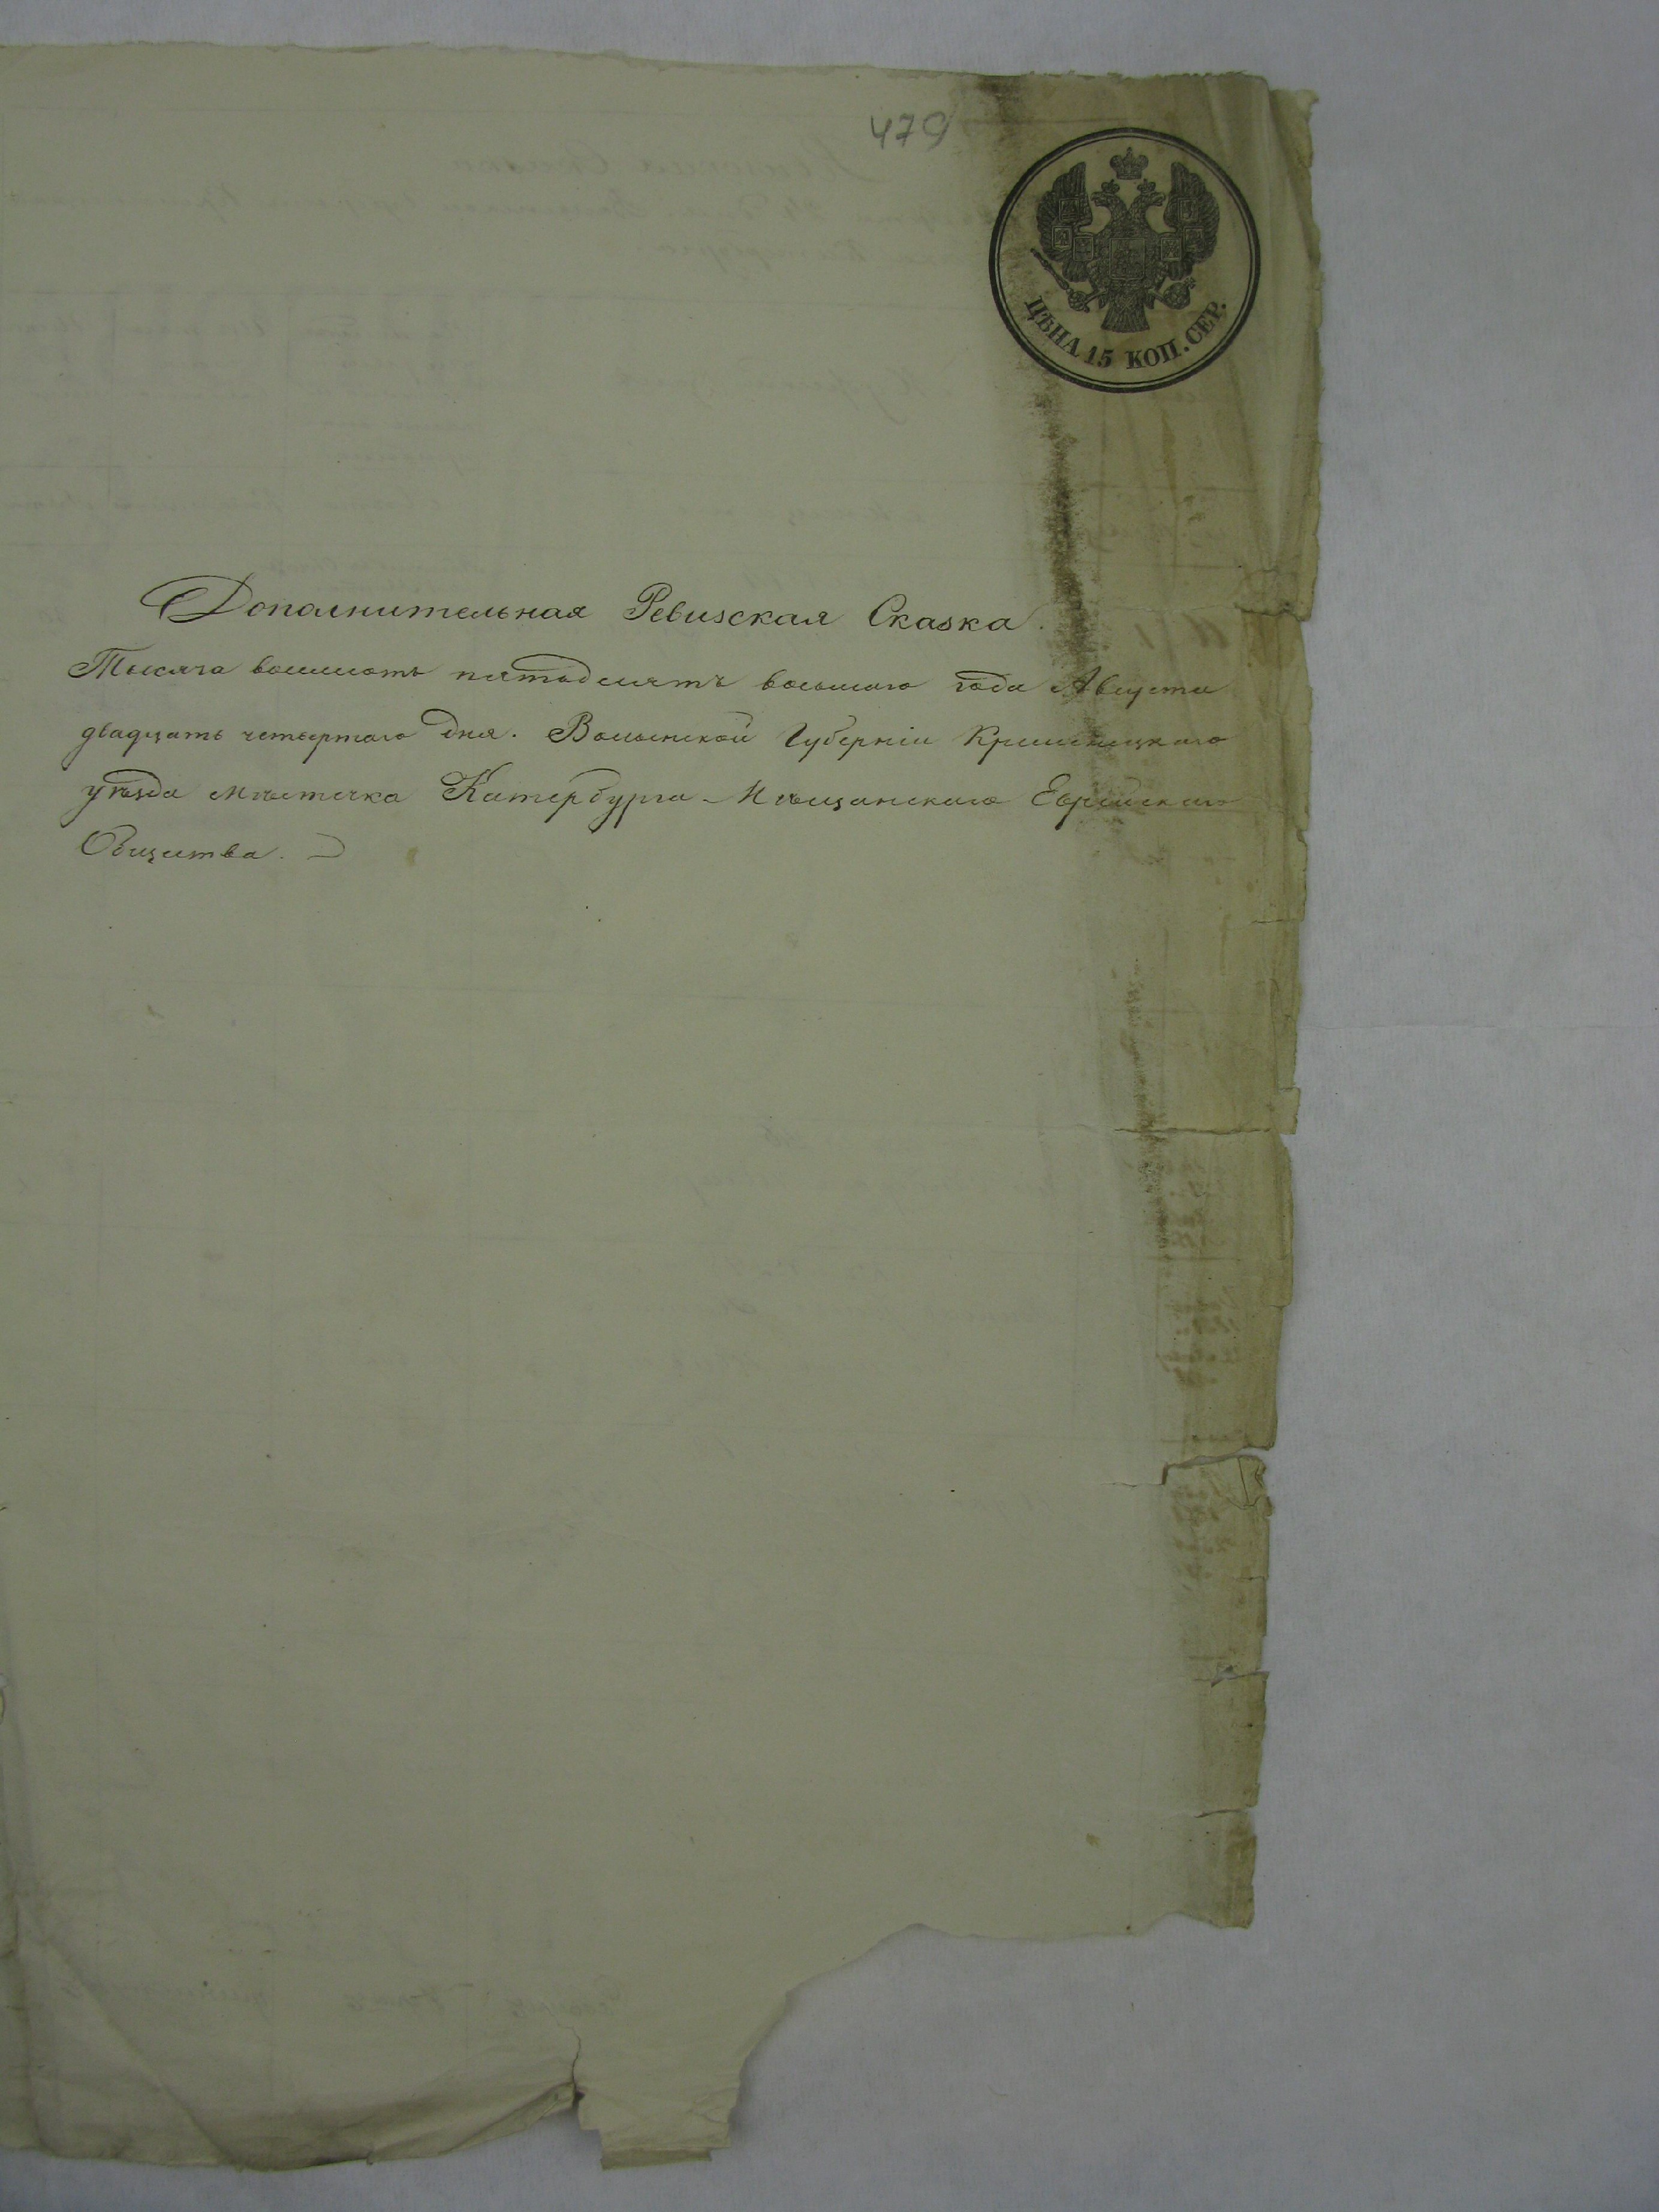 479
ЦѢНА 15 КОП. СЕР.
Дополнительная Ревизская Сказка.
Тысяча восемсотъ пятьдесятъ восьмаго года Августа
двадцать четвертаго дня. Волынской Губерніи Кременецкаго
уѣзда мѣстечка Катербурга - Мѣщанскаго Еврейскаго
Общества.